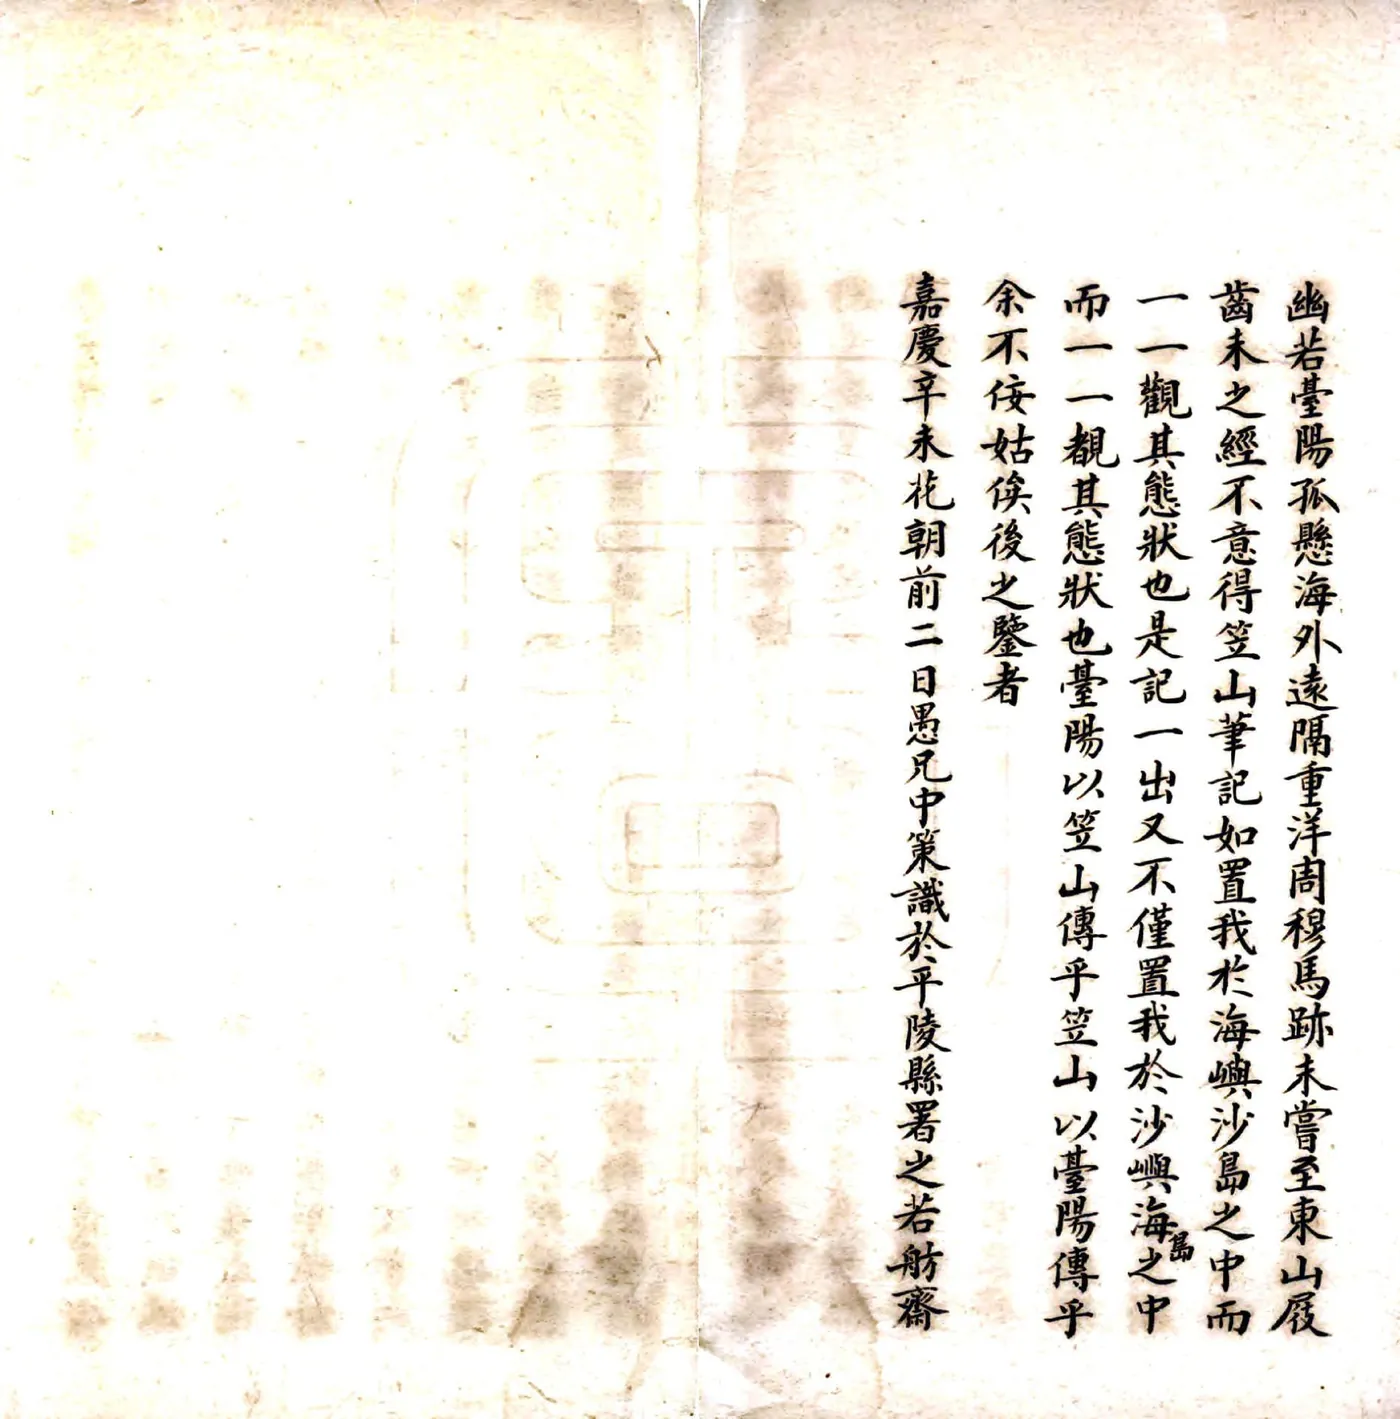 幽若臺陽孤懸海外遠隔重洋周穆馬跡未嘗至東山屐
齒未之經不意得笠山筆記如置我於海嶼沙島之中而
一一觀其態狀也是記一出又不僅置我於沙嶼海島之中
而一一覩其態狀也臺陽以笠山傳乎笠山以臺陽傳乎
余不佞姑俟後之鑒者
嘉慶辛未花朝前二日愚兄中策識於平陵縣署之若舫齋